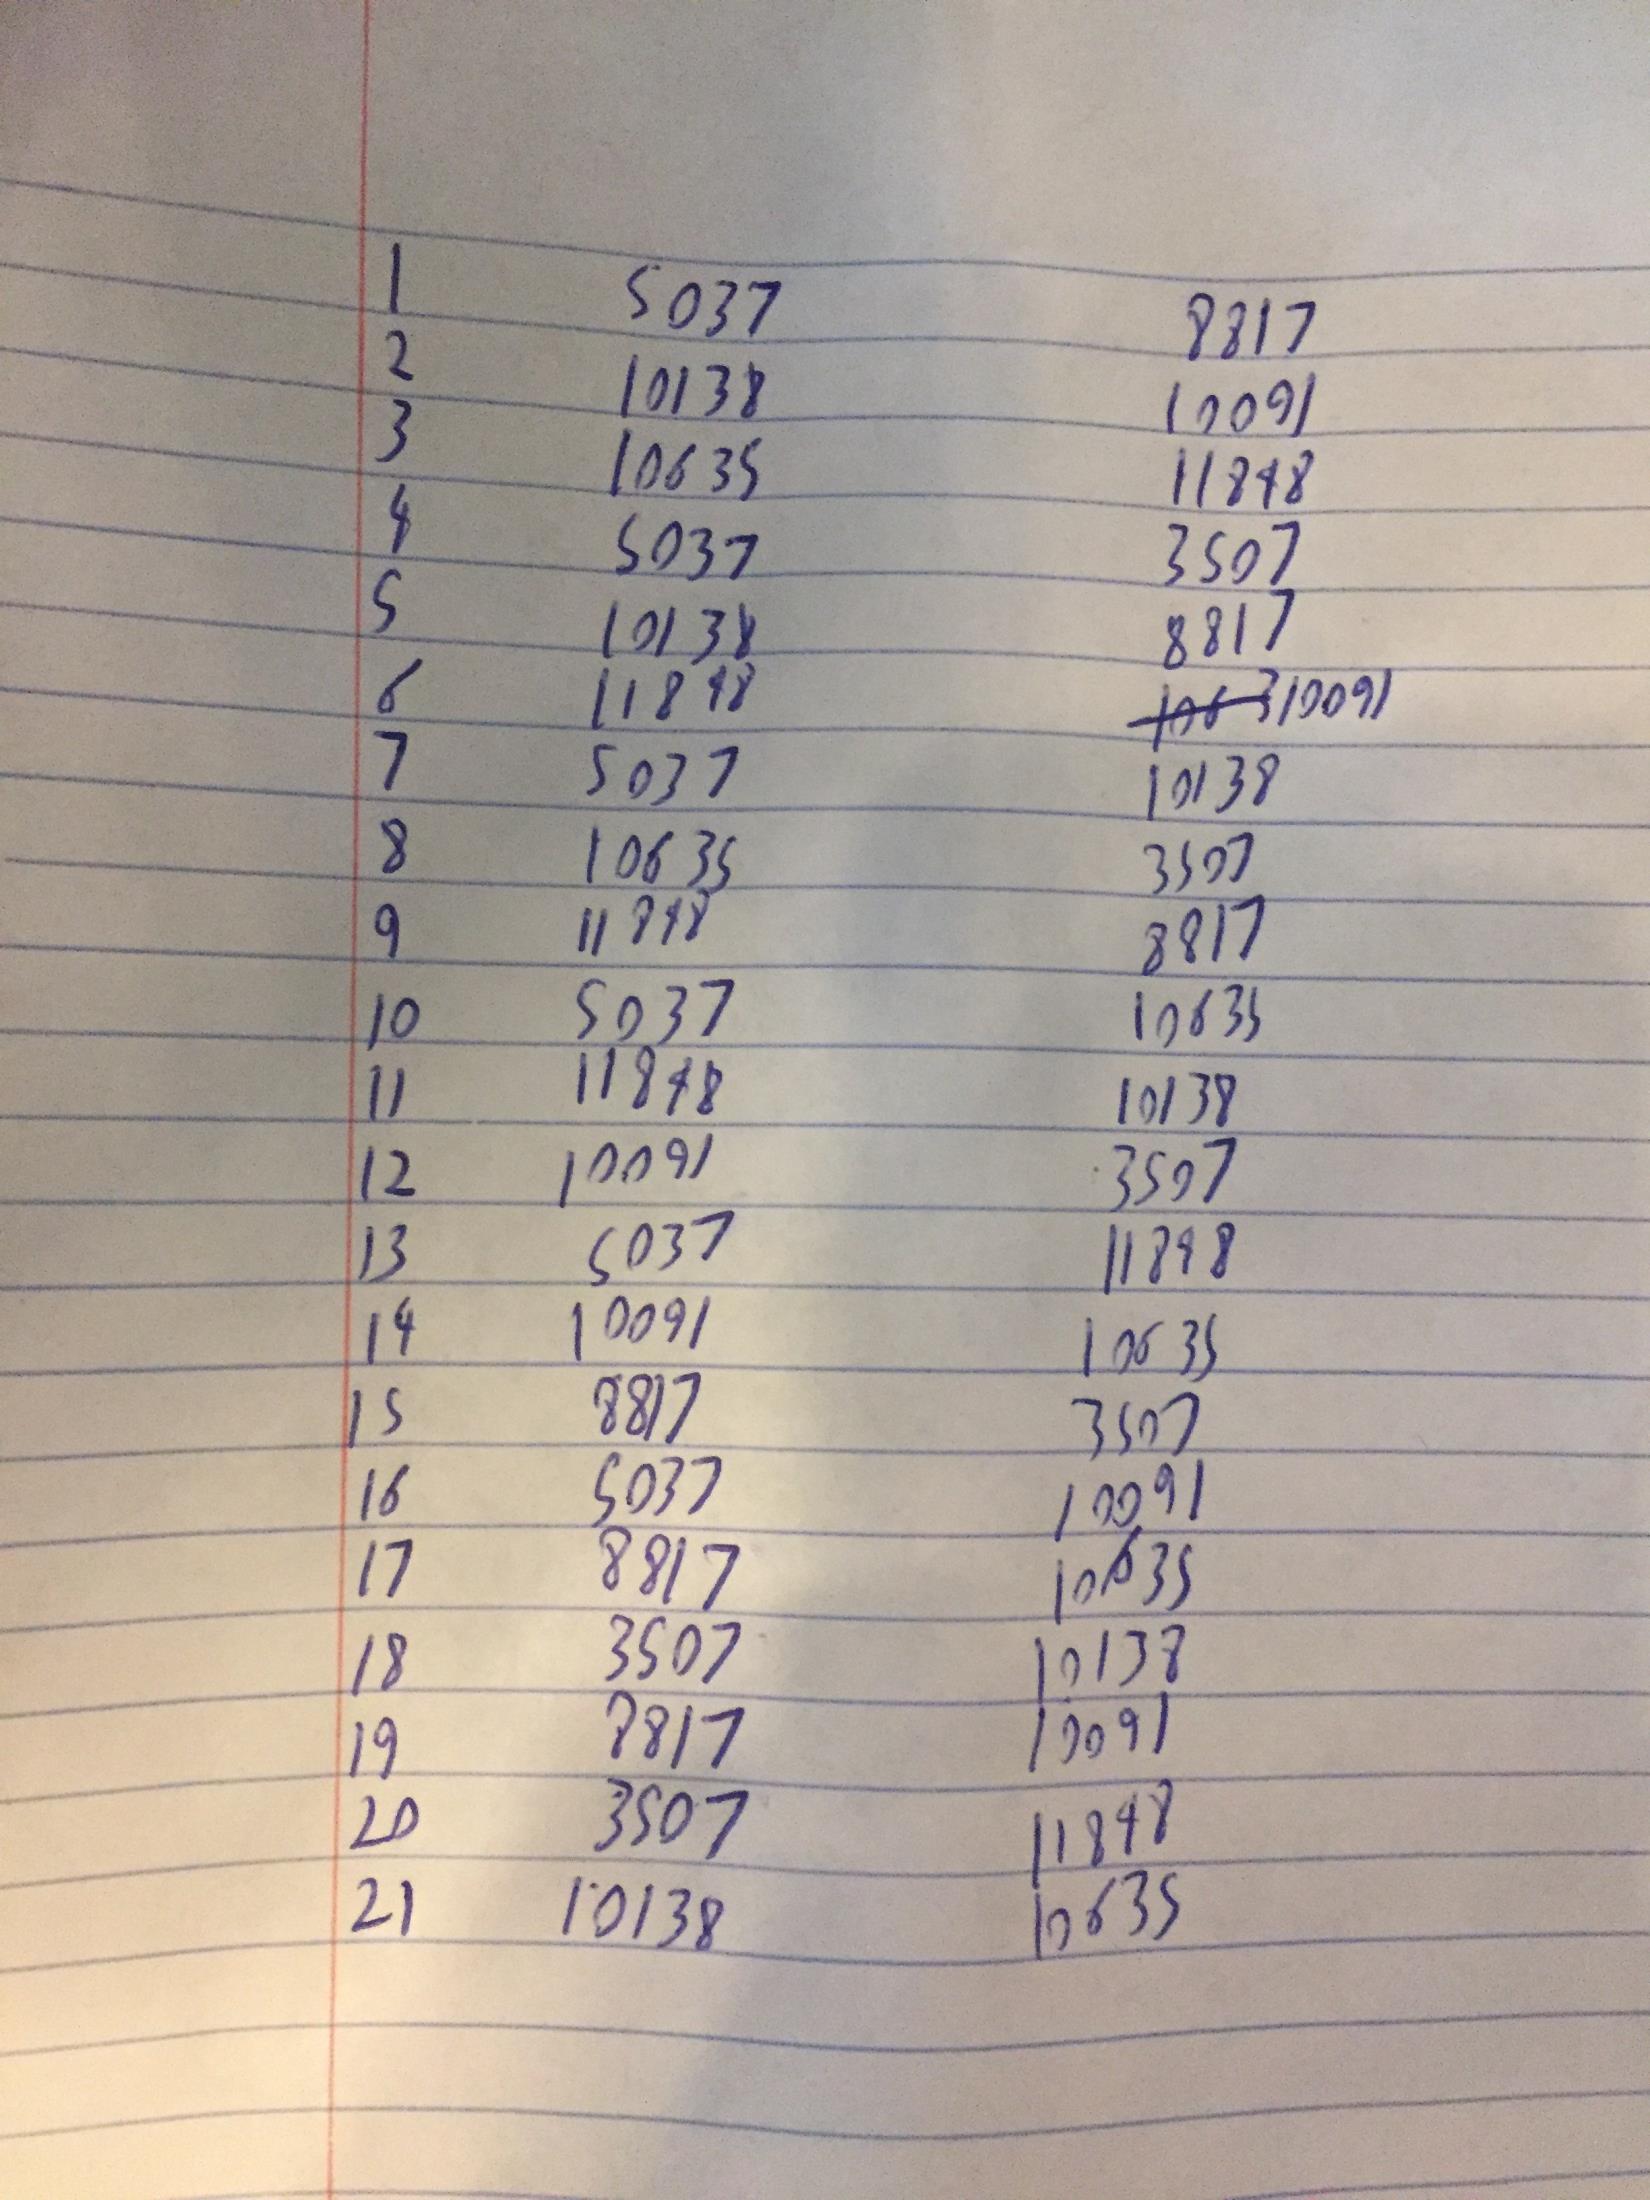 1 5037 8817
2 10138 10091
3 10635 11848
4 5037 3507
5 10138 8817
6 11848 1063 10091
7 5037 10138
8 10635 3507
9 11848 8817
10 5037 10635
11 11848 10138
12 10091 3507
13 5037 11848
14 10091 10635
15 8817 3507
16 5037 10091
17 8817 10635
18 3507 10138
19 8817 10091
20 3507 11848
21 10138 10635